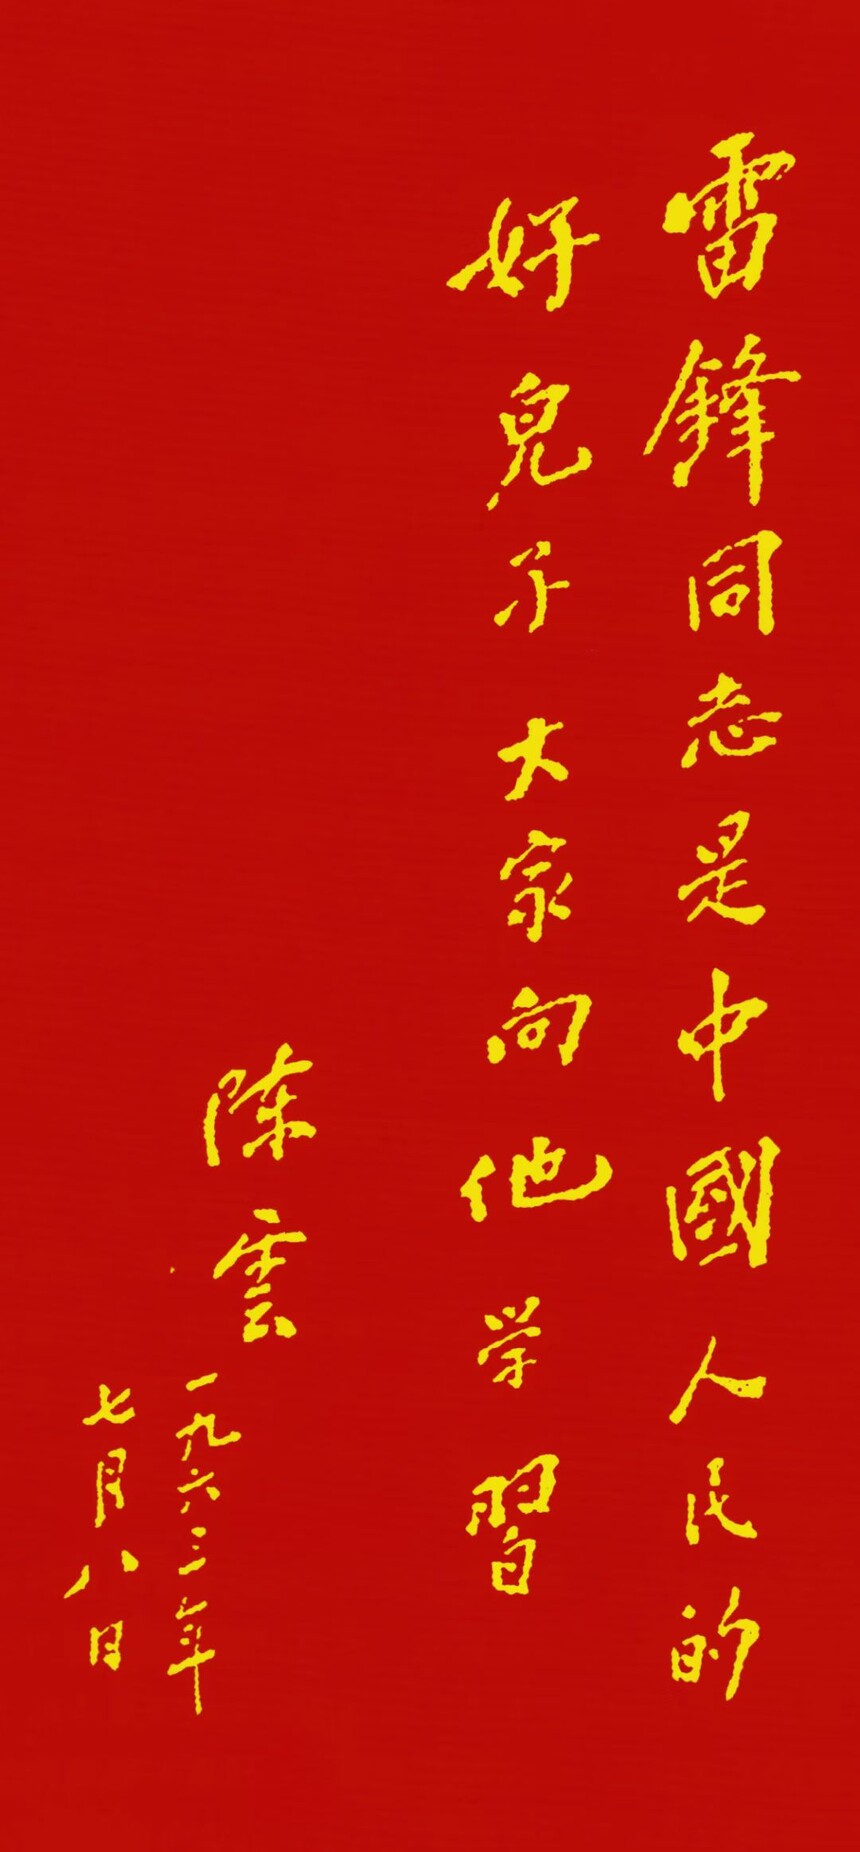 雷鋒同志是中國人民的
好兒子大家向他学習
陈雲
一九六三年
七月八日